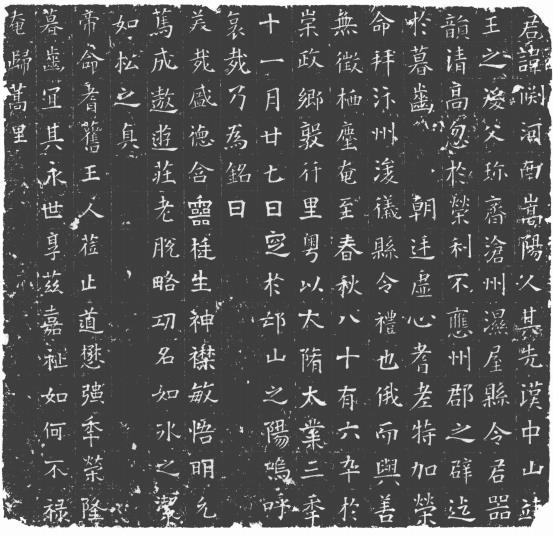 君諱渊河南嵩陽人其先漢中山靖
王之後父珎齊滄州濕屋縣令君器
韻清高忽於榮利不應州郡之辟迄
於暮齒朝廷虛心耆差特加榮
命拜汴州浚儀縣令禮也俄而與善
無徵栖壑奄至春秋八十有六卒於
崇政鄉毅行里粵以大隋大業三季
十一月廿七日窆於邙山之陽嗚呼
哀哉乃為銘曰
美哉盛德含靈挺生神襟敏悟明允
篤成遨遊莊老脫略功名如冰之潔
如松之真
帝命耆舊王人莅止道懋強季榮隆
暮齒宜其永世享茲嘉祉如何不祿
奄歸蒿里